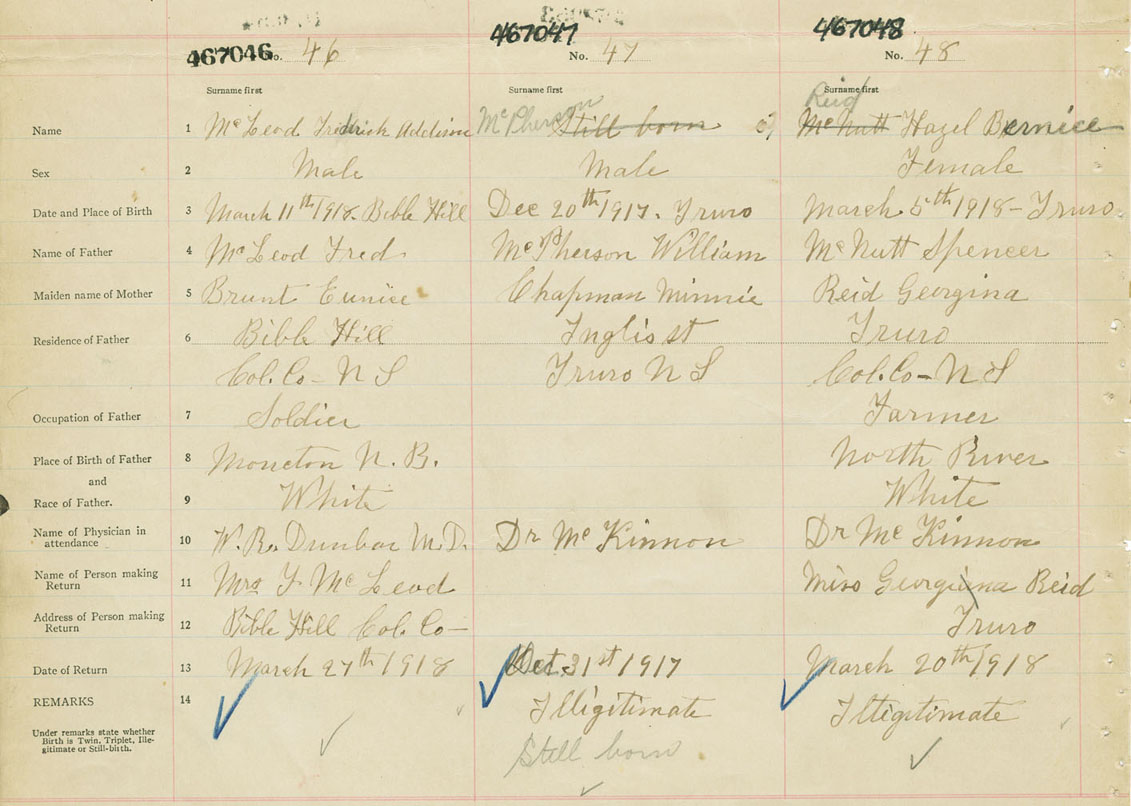 467046 No. 46
467047 No. 47
467048 No. 48
Surname first Surname first Surname first
Reid
Name 1 McLeod Fredrick Addison McPherson Still born McNutt Hazel Bernice
Sex 2 Male Male Female
Date and Place of Birth 3 March 11th 1918. Bible Hill Dec 20th 1917. Truro March 5th 1918 - Truro
Name of Father 4 McLeod Fred McPherson William McNutt Spencer
Maiden name of Mother 5 Brunt Eunice Chapman Minnie Reid Georgina
Residence of Father 6 Bible Hill Inglis st Truro
Col. Co - N S Truro N S Col. Co - N S
Occupation of Father 7 Soldier Farmer
Place of Birth of Father 8 Moncton N. B. North River
and
Race of Father. 9 White White
Name of Physician in
attendance 10 W. R. Dunbar M.D. Dr McKinnon Dr McKinnon
Name of Person making
Return 11 Mrs F McLeod Miss Georgiana Reid
Address of Person making
Return 12 Bible Hill Col. Co - Truro
Date of Return 13 March 27th 1918 31st 1917 March 20th 1918
REMARKS 14 Illigitimate Illigitimate
Under remarks state whether
Birth is Twin, Triplet, Ille-
gitimate or Still-birth.
Still born